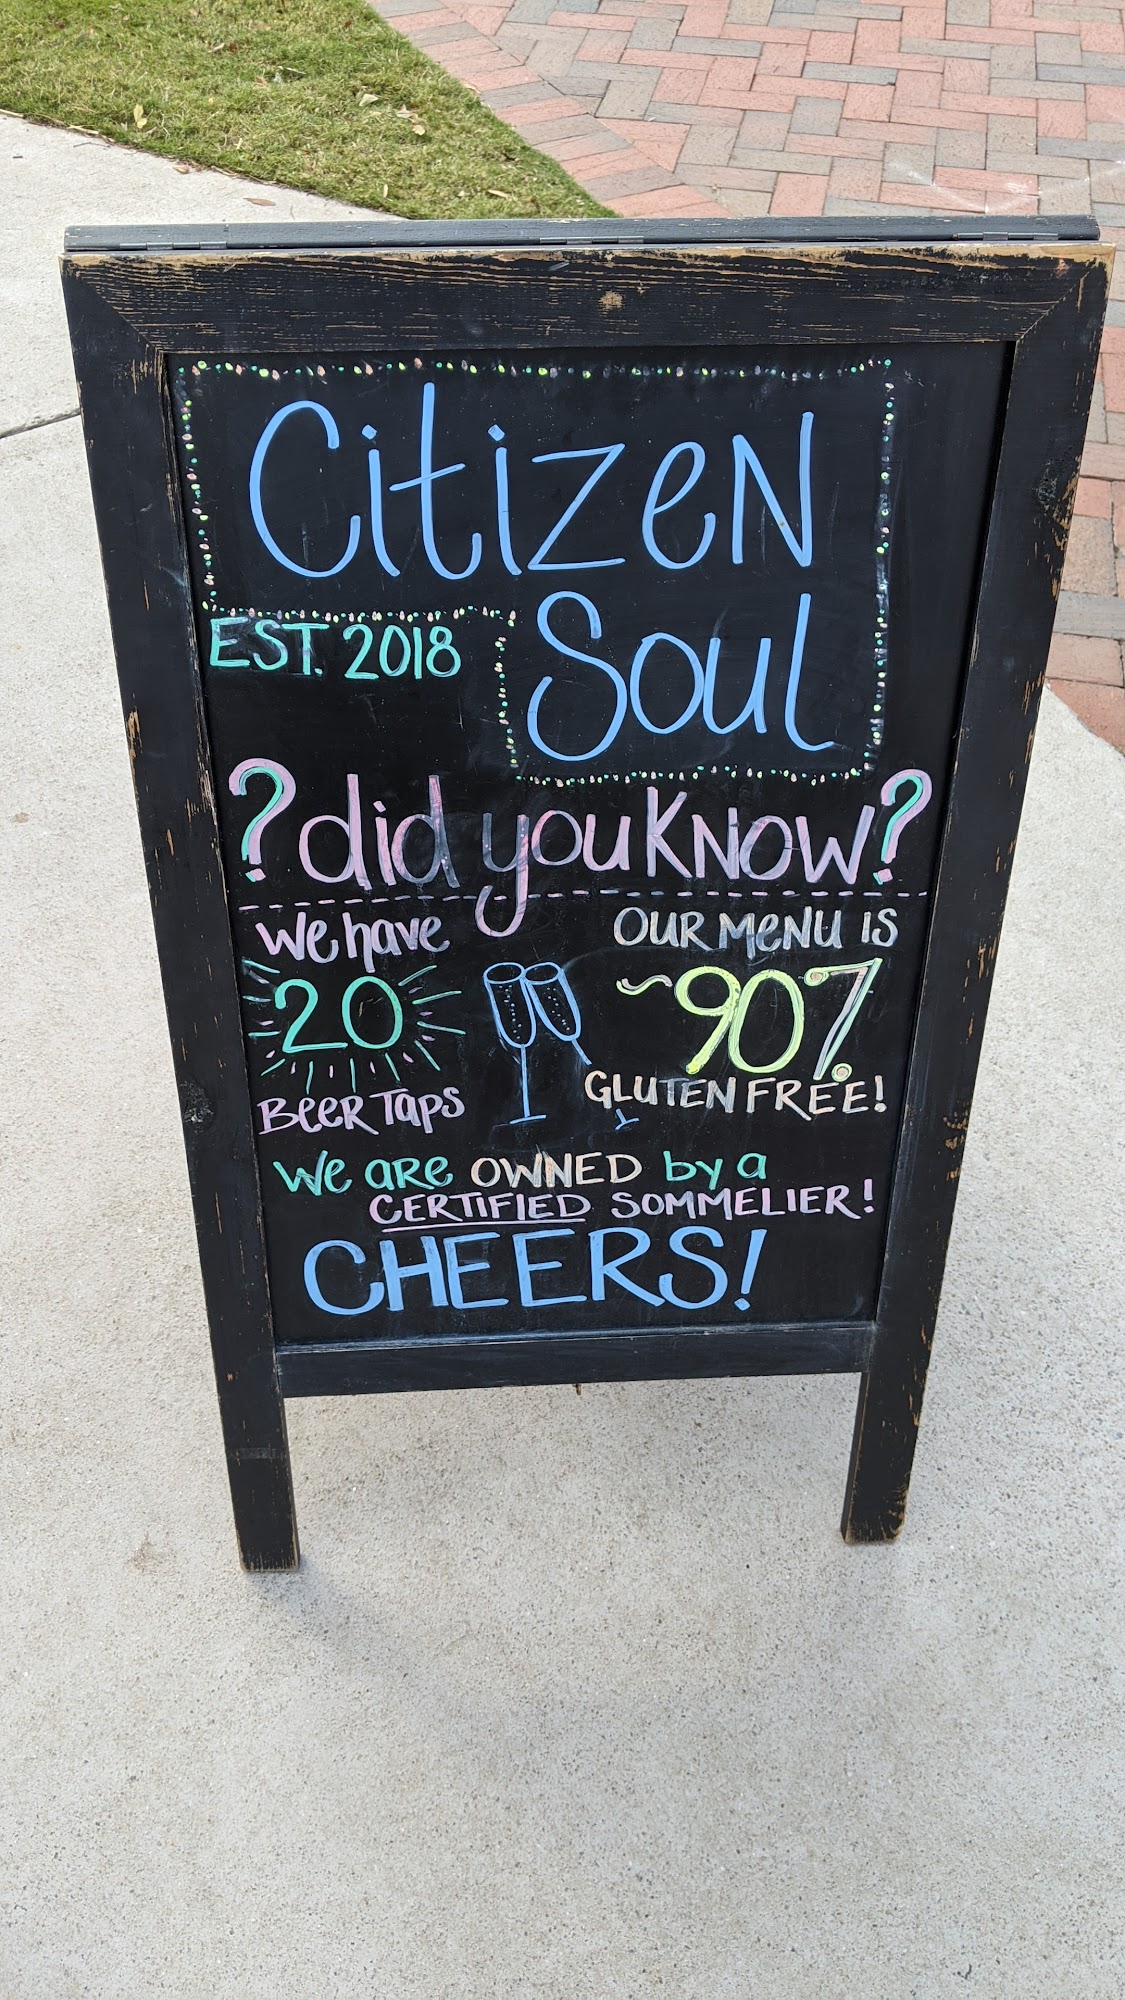 Citizen
Soul
EST. 2018
? did you KNOW?
We have
20
Beer Taps
OUR MENU IS
~90%
GLUTEN FREE!
We are OWNED by a
CERTIFIED SOMMELIER!
CHEERS!